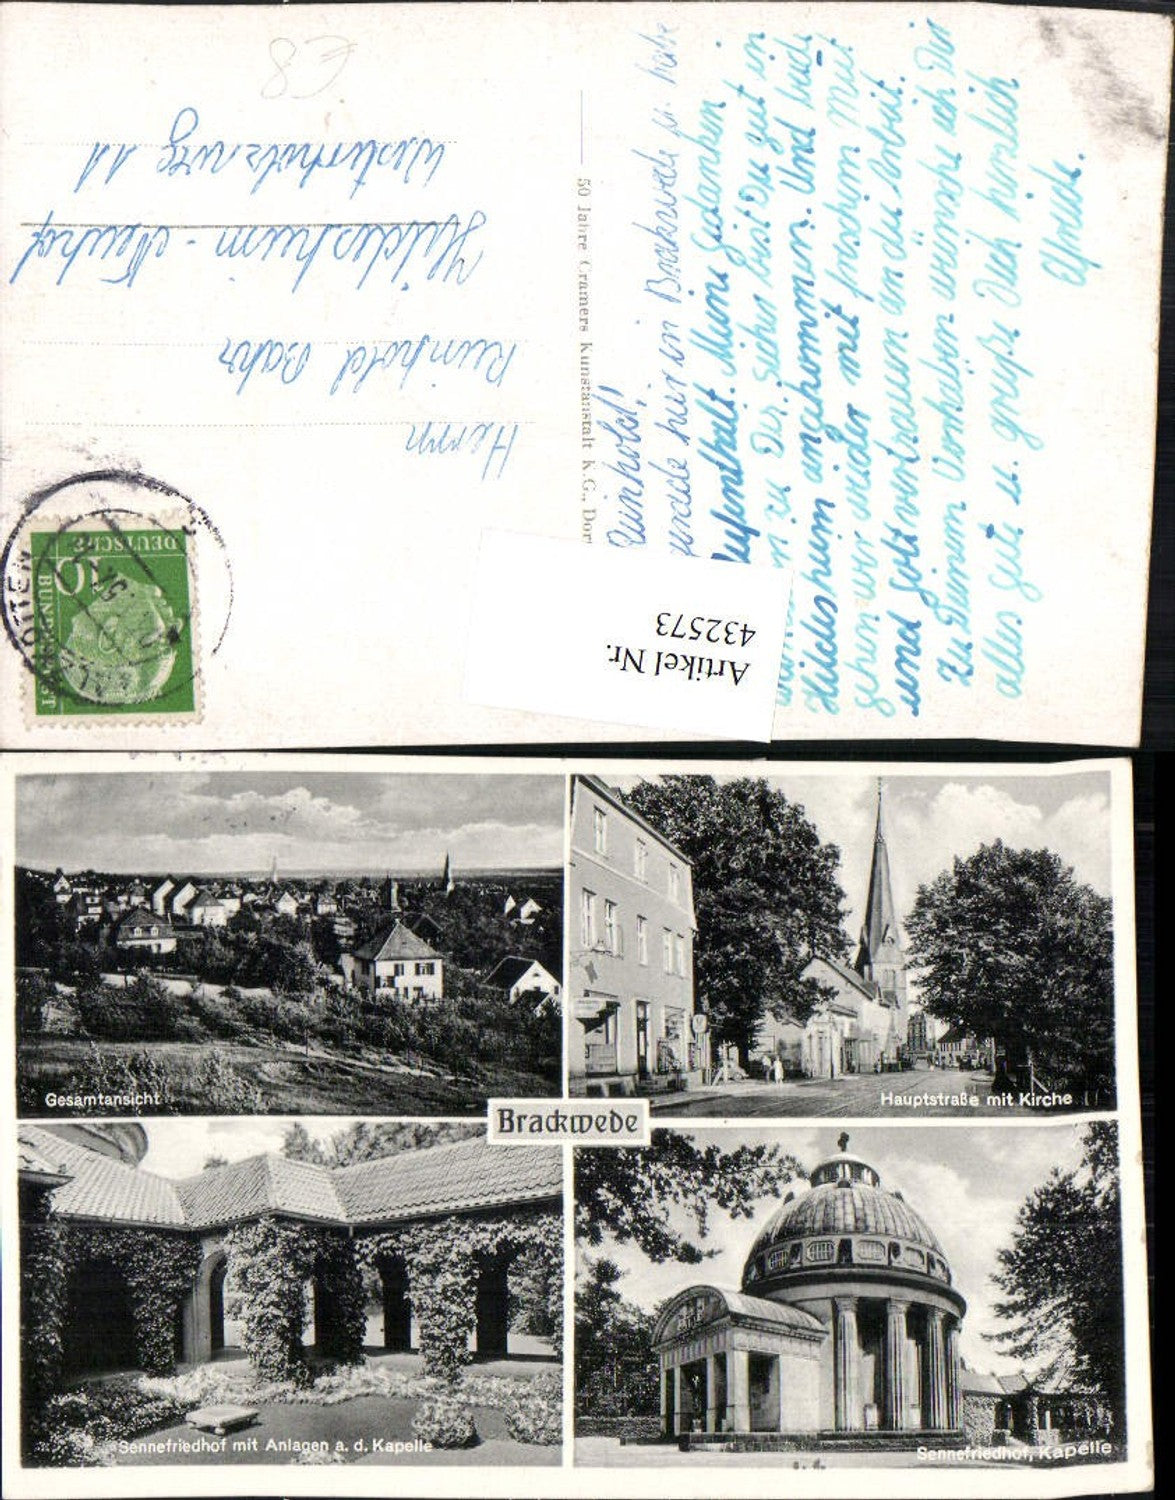 E8
Herrn
Reinhold Bahr
Hildesheim-Neuhof
Westerholzweg 11
DEUTSCHE
BUNDESPOST
10
50 Jahre Cramers Kunstanstalt K.G., Dor
Reinhold!
gerade hier in Brackwede
Aufenthalt. Meine Gedanken
zu Dir. sicher bist Du gut in
Hildesheim angekommen. Und bald
gehen wir wieder mit frischem Mut
und Gottvertrauen an die Arbeit.
Zu Deinem Vorhaben wünsche ich Dir
alles Gute u. grüße Dich herzlich
Artikel Nr.
432573
Gesamtansicht
Hauptstraße mit Kirche
Brackwede
Sennefriedhof mit Anlagen a. d. Kapelle
Sennefriedhof, Kapelle